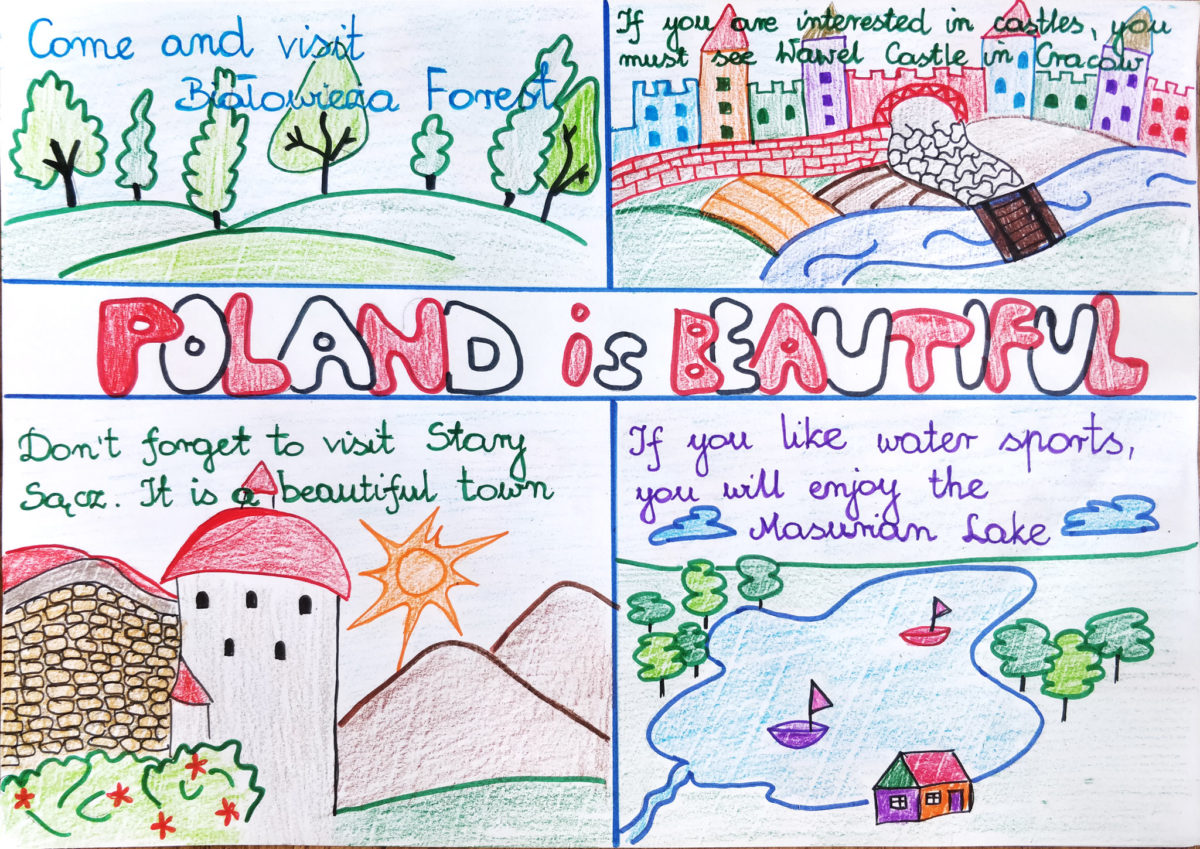 Come and visit
Białowieza Forest
If you are interested in castles, you
must see Wawel Castle in Cracow
POLAND is BEAUTIFUL
Don't forget to visit Stary
Sącz. It is a beautiful town
If you like water sports,
you will enjoy the
Masurian Lake